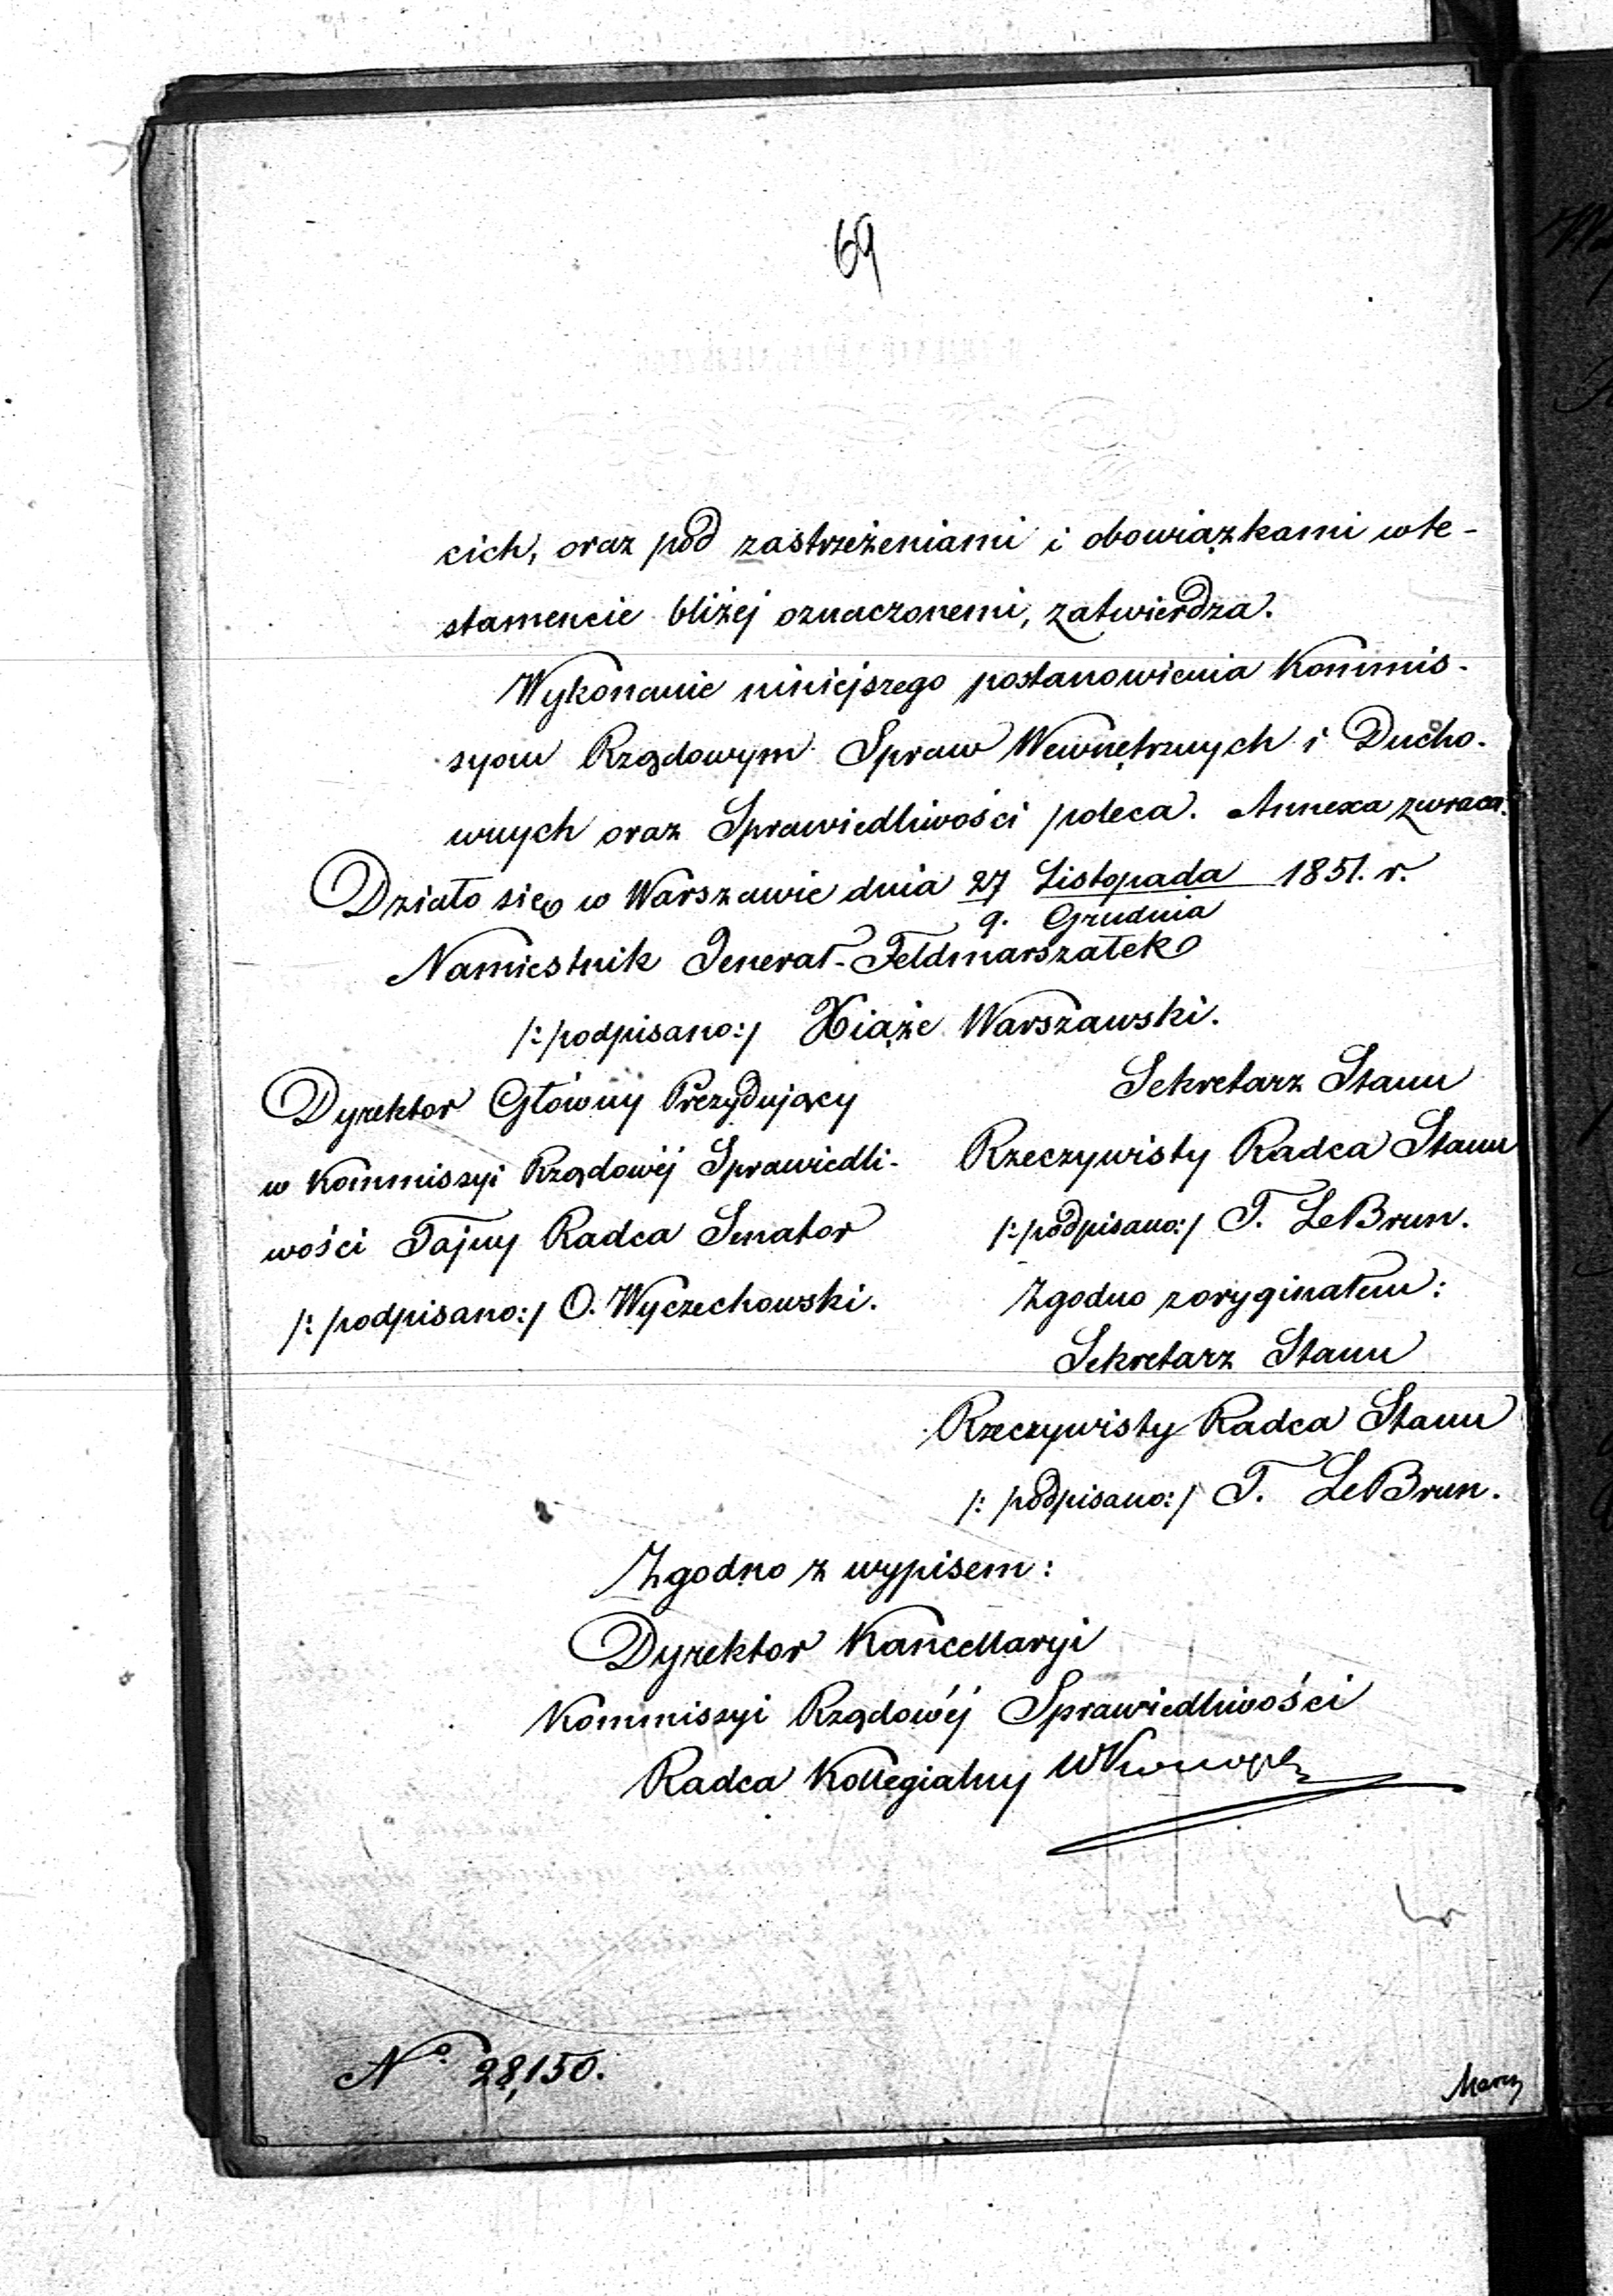 69
cich, oraz pod zastrzeżeniami i obowiązkami wte-
stamencie bliżej oznaczonemi, zatwierdza.
Wykonanie niniejszego postanowienia Kommis-
syom Rządowym Spraw Wewnętrznych i Ducho-
wnych oraz Sprawiedliwości poleca. Annexa zwraca.
Działo się w Warszawie dnia 27 Listopada 1851. r.
9. Grudnia
Namiestnik Jenerał-Feldmarszałek
/:podpisano:/ Xiąże Warszawski.
Dyrektor Główny Prezydujący
w Kommissyi Rządowéj Sprawiedli-
wości Tajny Radca Senator
/:podpisano:/ O. Wyczechowski.
Sekretarz Stanu
Rzeczywisty Radca Stanu
/:podpisano:/ T. LeBrun.
Zgodno z oryginałem:
Sekretarz Stanu
Rzeczywisty Radca Stanu
/:podpisano:/ T. LeBrun.
Zgodno z wypisem:
Dyrektor Kancellaryi
Kommissyi Rządowéj Sprawiedliwości
Radca Kollegialny
No 28,150.